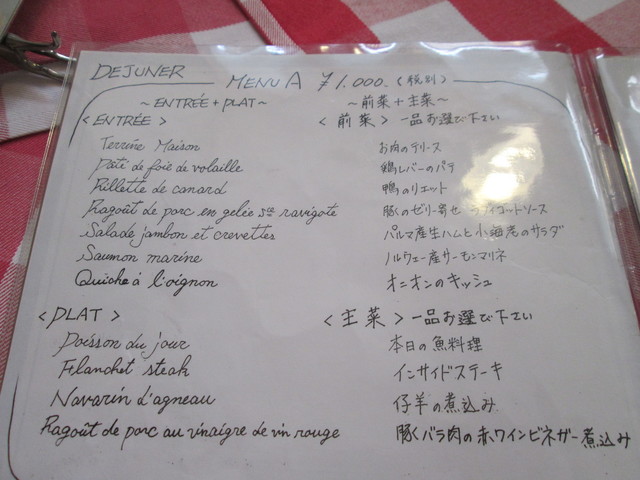 DEJUNER MENU A ¥1.000- (税別)
~ENTRÉE + PLAT~ ~前菜+主菜~
<ENTRÉE> <前菜>一品お選び下さい
Terrine Maison お肉のテリース
Pâté de foie de volaille 鶏レバーのパテ
Rillette de canard 鴨のリエット
Ragoût de porc en gelée sce ravigote 豚のゼリー寄せ ラヴィゴットソース
Salade jambon et crevettes パルマ産生ハムと小海老のサラダ
Saumon marine ノルウェー産サーモンマリネ
Quiche à l'oignon オニオンのキッシュ
<PLAT> <主菜>一品お選び下さい
Poisson du jour 本日の魚料理
Flanchet steak インサイドステーキ
Navarin d'agneau 仔羊の煮込み
Ragoût de porc au vinaigre de vin rouge 豚バラ肉の赤ワインビネガー煮込み